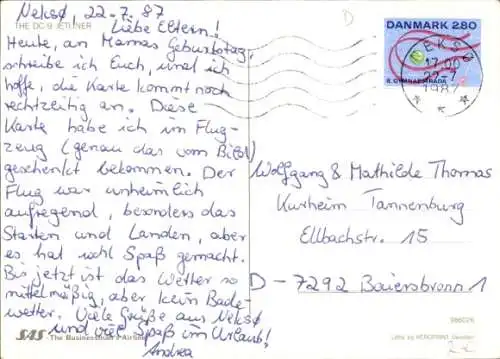 Neksø, 22-7.87
THE DC-9 JETLINER
Liebe Eltern!
Heute, an Mamas Geburtstag,
schreibe ich Euch, und ich
hoffe, die Karte kommt noch
rechtzeitig an. Diese
Karte habe ich im Flug-
zeug (genau das vom Bild)
geschenkt bekommen. Der
Flug war unheimlich
aufregend, besonders das
Starten und Landen, aber
es hat wohl Spaß gemacht.
Bis jetzt ist das Wetter so
mittelmäßig, aber kein Bade-
wetter. Viele Grüße aus Neksø
und viel Spaß im Urlaub!
Andrea
SAS The Businessman's Airline
D
DANMARK 2.80
8. GYMNAESTRADA
EKS
17.00
22-7
1987
Wolfgang & Mathilde Thomas
Kurheim Tannenburg
Ellbachstr. 15
D - 7292 Baiersbronn 1